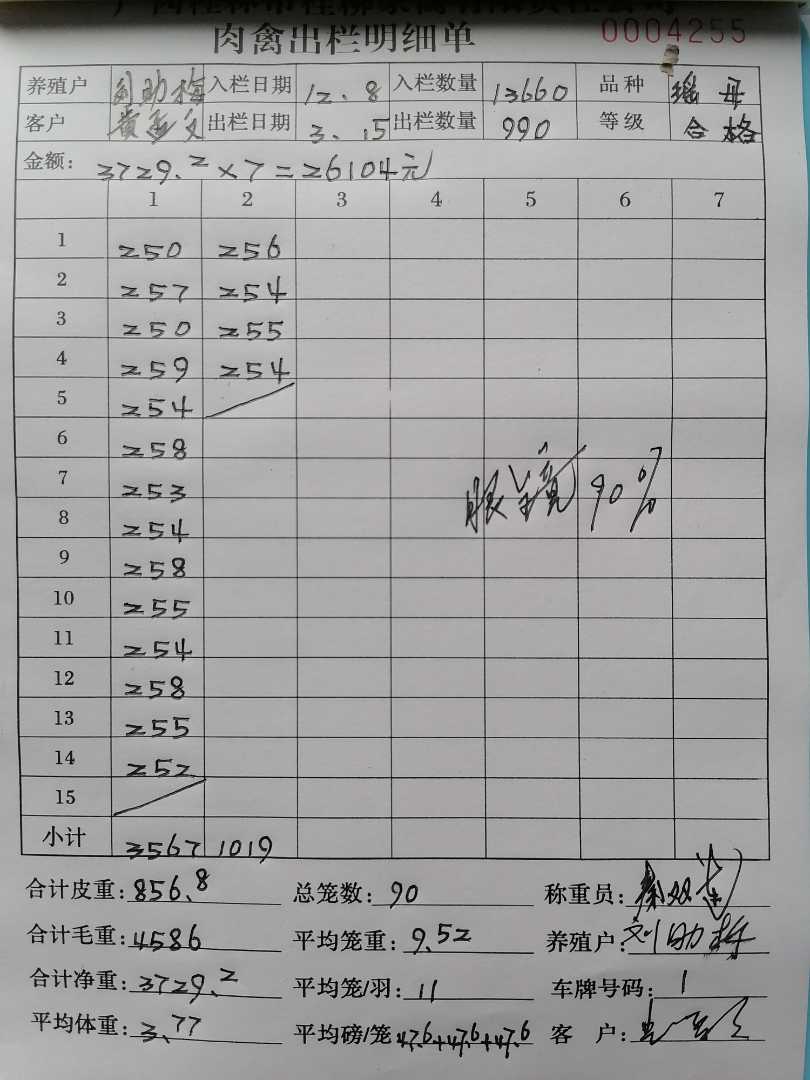 肉禽出栏明细单 0004255
养殖户 刘助梅 入栏日期 12.8 入栏数量 13660 品种 瑶母
客户 出栏日期 3.15 出栏数量 990 等级 合格
金额: 3729.2×7=26104元
1 2 3 4 5 6 7
1 250 256
2 257 254
3 250 255
4 259 254
5 254
6 258
7 253
眼镜90%
8 254
9 258
10 255
11 254
12 258
13 255
14 252
15
小计 3567 1019
合计皮重: 856.8 总笼数: 90 称重员:
合计毛重: 4586 平均笼重: 9.52 养殖户: 刘助梅
合计净重: 3729.2 平均笼/羽: 11 车牌号码: 1
平均体重: 3.77 平均磅/笼 47.6+47.6+47.6 客 户: